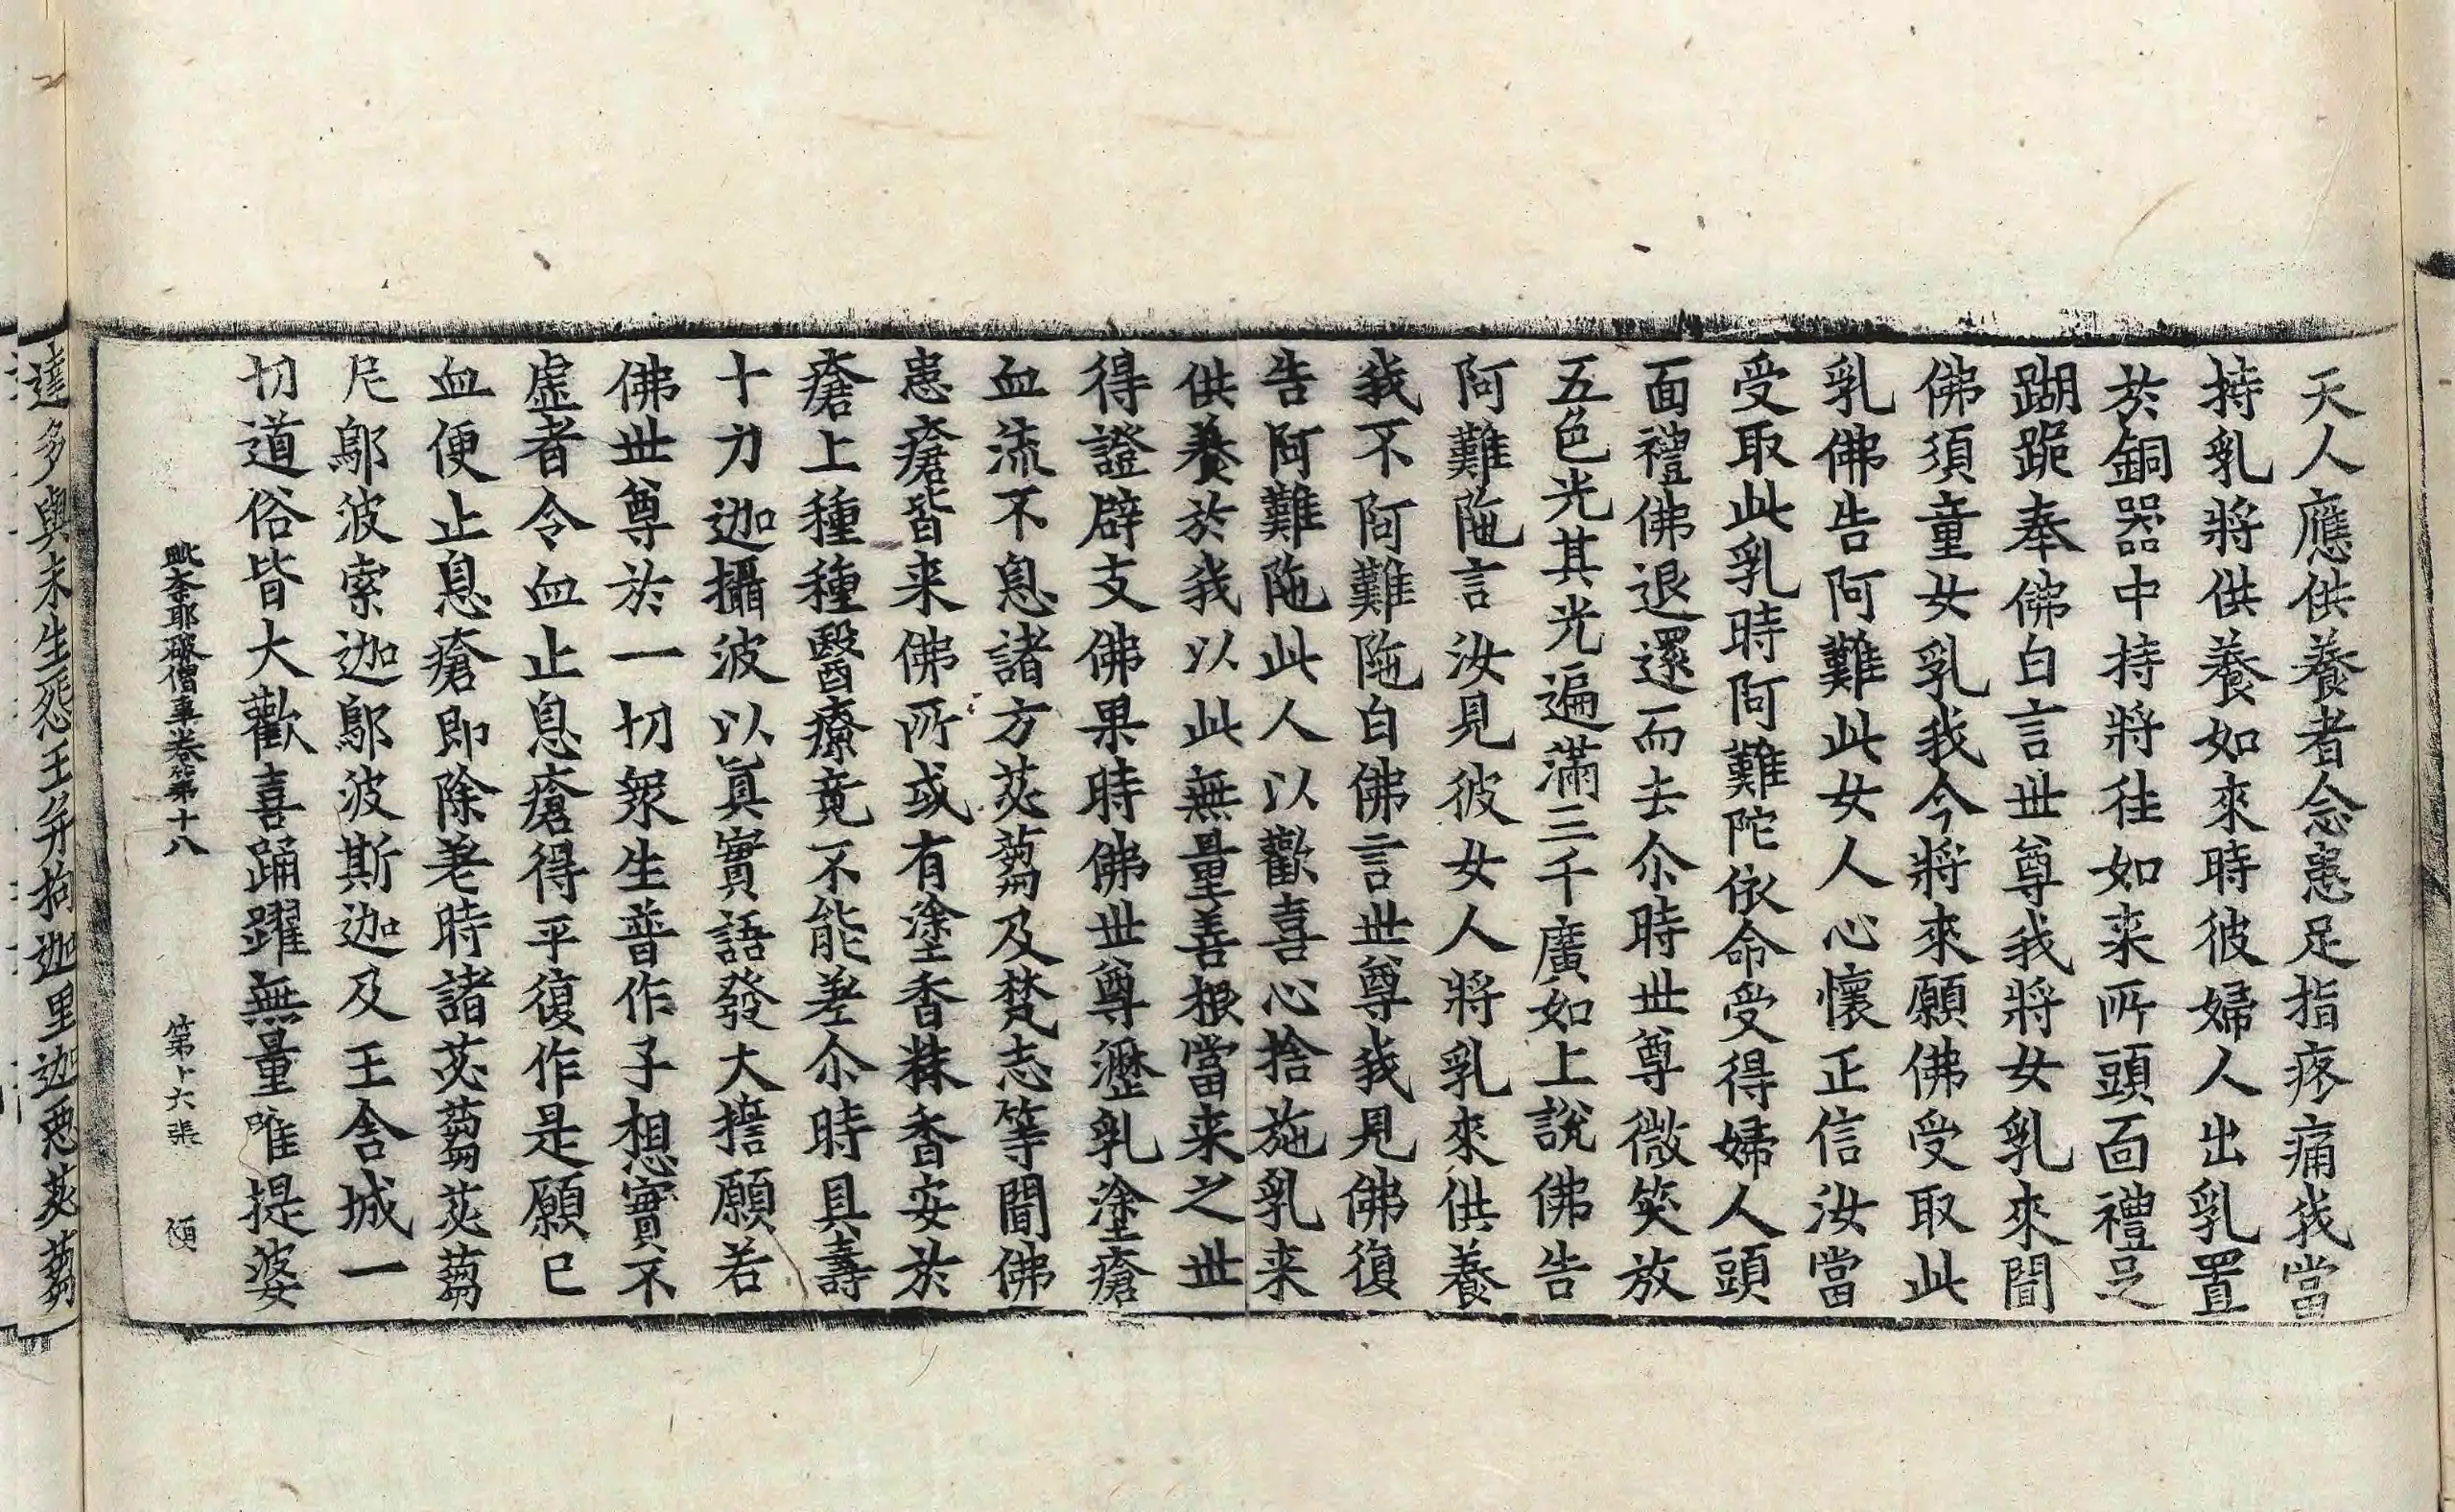 天人應供養者念患足指疼痛我當
持乳將供養如來時彼婦人出乳置
於銅器中持將往如来所頭面禮足
蹦跪奉佛白言世尊我將女乳來聞
佛須童女乳我今將來願佛受取此
乳佛告阿難此女人心懷正信汝當
受取此乳時阿難陀依命受得婦人頭
面禮佛退還而去尒時世尊微笑放
五色光其光遍滿三千廣如上說佛告
阿難陁言汝見彼女人將乳來供養
我不阿難陁白佛言世尊我見佛復
告阿難陁此人以歡喜心捨施乳来
供養於我以此無量善根當来之世
得證辟支佛果時佛世尊瀝乳塗瘡
血流不息諸方苾蒭及梵志等聞佛
患瘡皆来佛所或有塗香秣香安於
瘡上種種醫療竟不能差尒時具壽
十力迦攝波以真實語發大誓願若
佛世尊於一切衆生普作子想實不
虛者令血止息瘡得平復作是願已
血便止息瘡即除差時諸苾蒭苾蒭
尼鄔波索迦鄔波斯迦及王舍城一
切道俗皆大歡喜踊躍無量唯提婆
毗奈耶破僧事卷第十八 第十六張
達多與未生怨王并拘迦里迦惡苾蒭